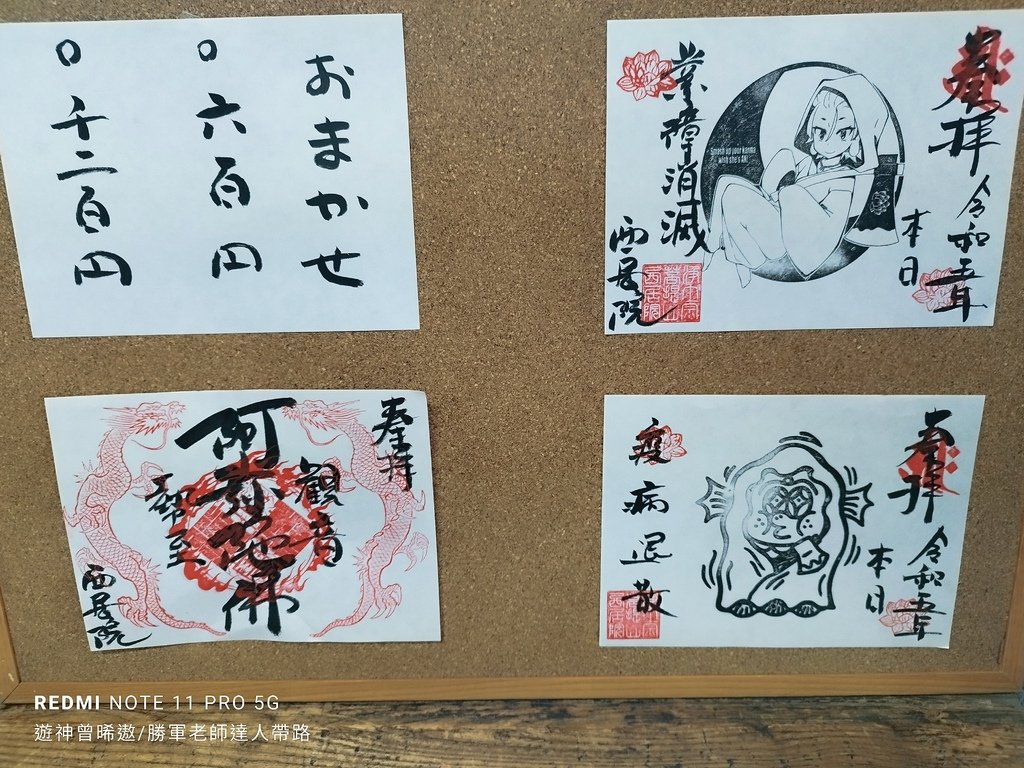 おまかせ
○ 六百円
○ 千二百円
奉拝
令和五年
本日
Smash up your karma
with she's AK!
業障消滅
西居院
奉拝
觀音
阿弥陀佛
勢至
西居院
奉拝
令和五年
本日
疫病退散
REDMI NOTE 11 PRO 5G
遊神曾晞遨/勝軍老師達人帶路